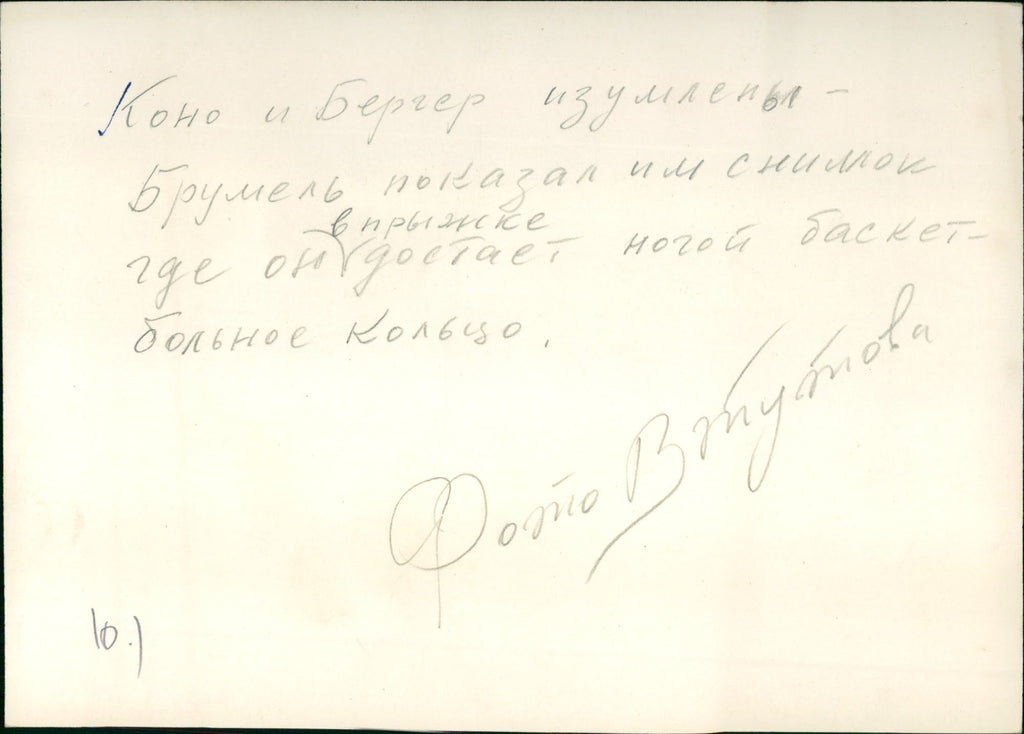 Коно и Бергер изумлены -
Брумель показал им снимок
где он в прыжке достает ногой баскет-
больное кольцо.
Фото В Шутова
10.)